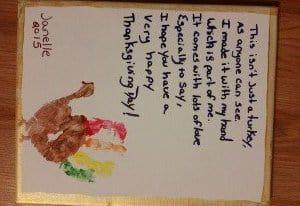 This isn't Just a turkey,
as anyone can see.
I made it with my hand
which is part of me.
It comes with lots of love
Especially to say,
I hope you have a
very happy
Thanksgiving Day!
Janelle
2015